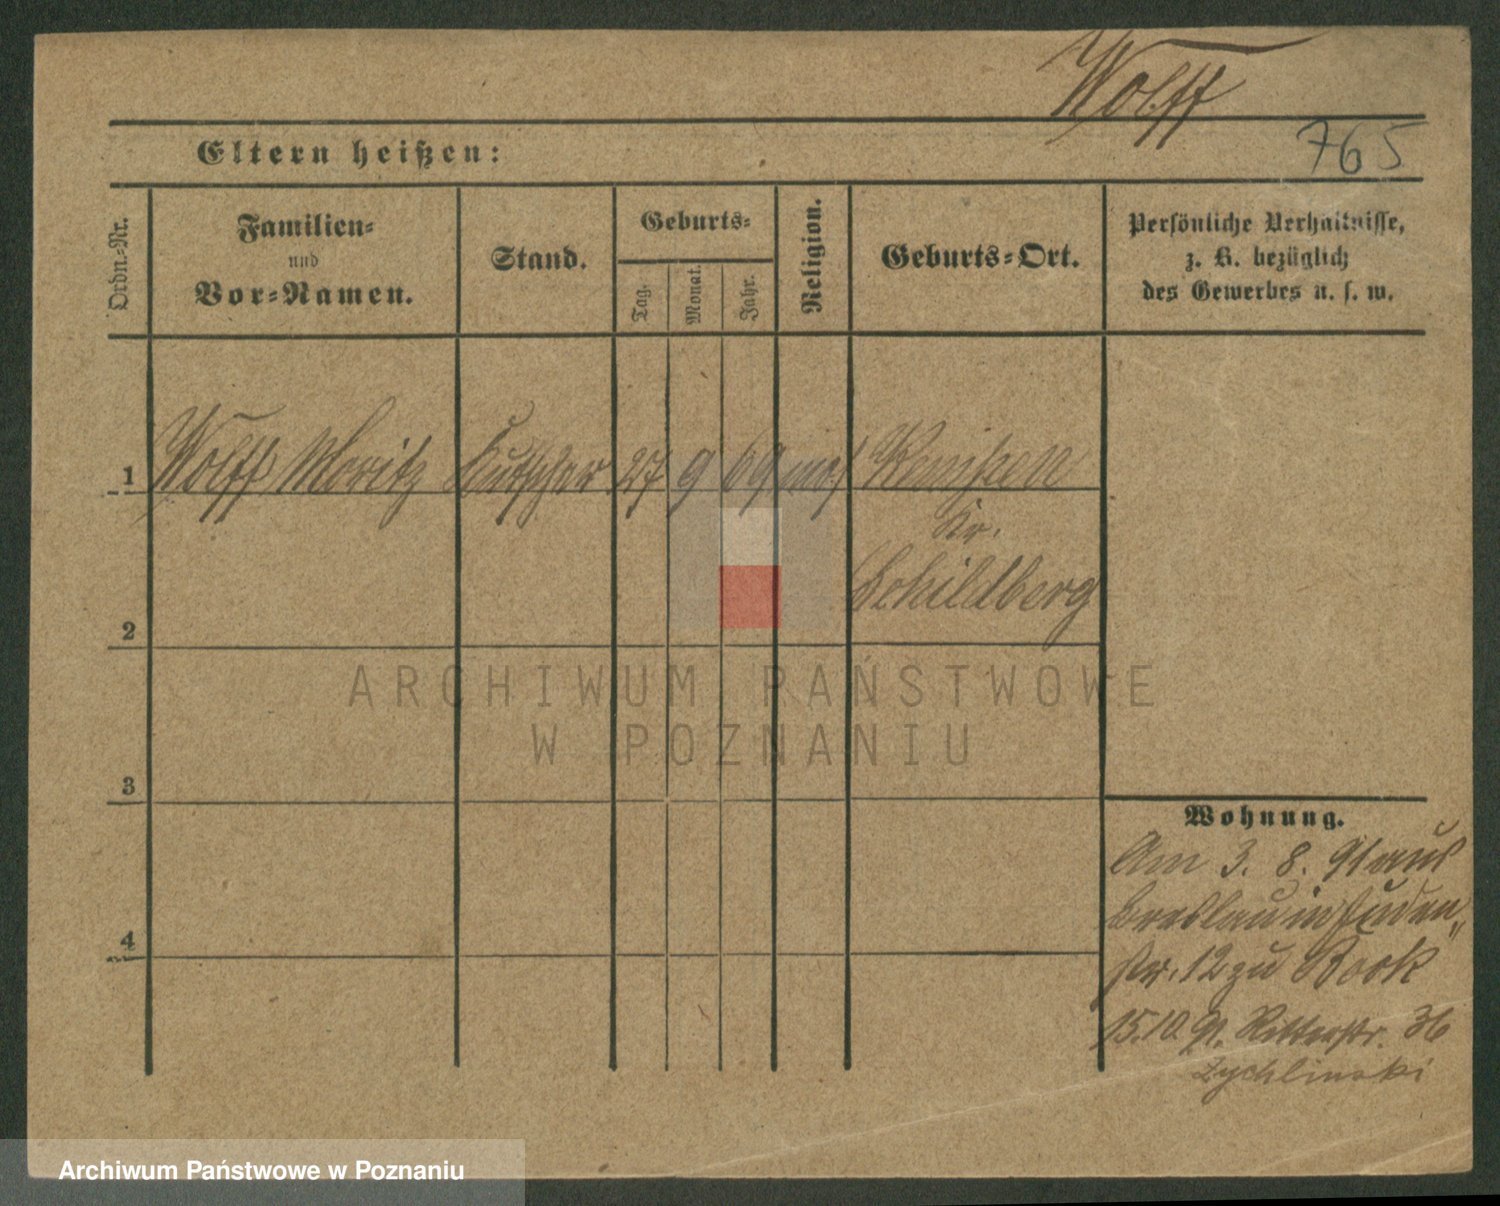 Wolff
765
Eltern heißen:
Ordn.-Nr.
Familien-
und
Vor-Namen.
Stand.
Geburts-
Tag.
Monat.
Jahr.
Religion.
Geburts-Ort.
Persönliche Verhältnisse,
z. B. bezüglich
des Gewerbes u. s. w.
1 Wolff Moritz Kutscher 27 9 69 mos Kempen
Kr.
Schildberg
2
3
4
Wohnung.
Am 3. 8. 91 aus
Breslau in Juden„
str. 12 zu Kook
15.10. 91. Ritterstr. 36
Zychlinski
ARCHIWUM PAŃSTWOWE
W POZNANIU
Archiwum Państwowe w Poznaniu